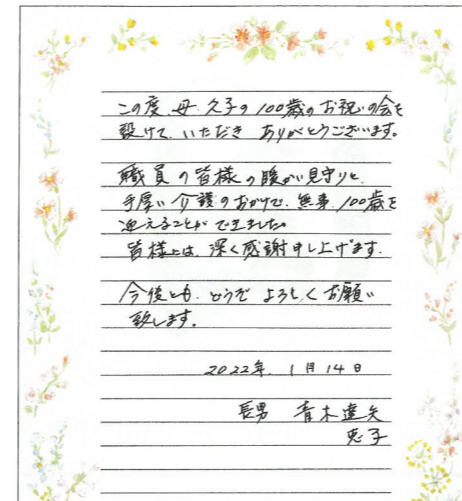 この度、母 久子の100歳のお祝の会を
設けて いただき ありがとうございます。
職員の皆様の暖かい見守りと、
手厚い介護のおかげで、無事、100歳を
迎えることができました。
皆様には、深く感謝申し上げます。
今後とも、どうぞ よろしくお願い
致します。
2022年 1月14日
長男 青木達矢
恵子